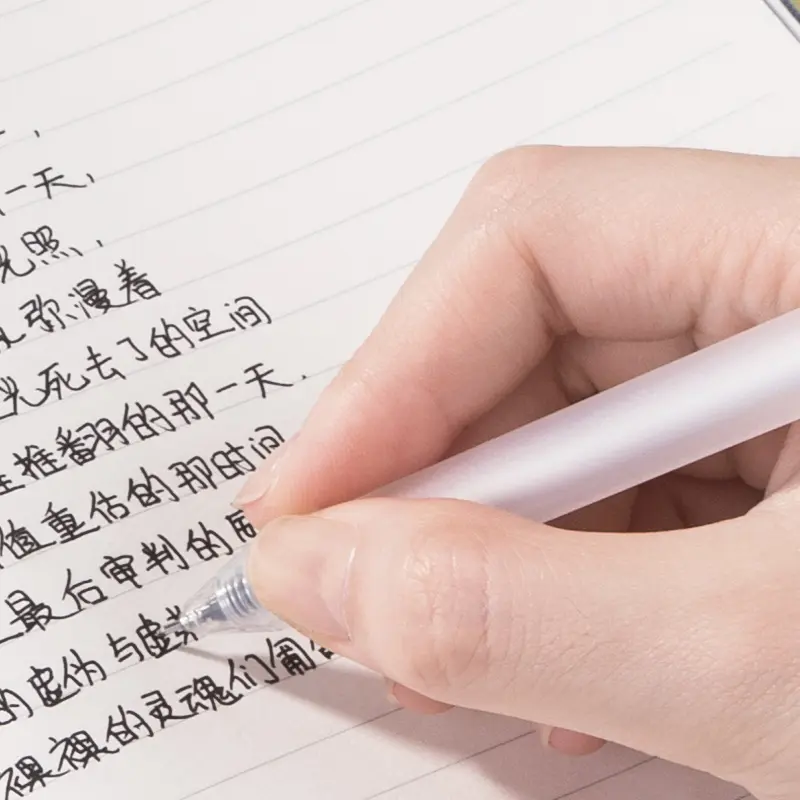 一天,
光照,
弥漫着
死去了的空间
推翻的那一天.
值重估的那时间
最后审判的
的虚伪与虚
裸裸的灵魂们匍